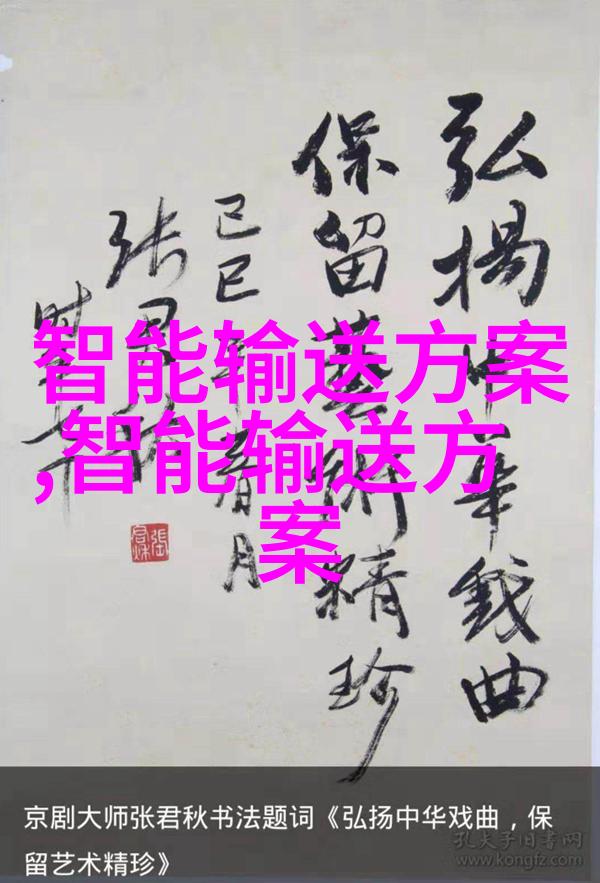 弘揚中華戲曲
保留藝術精珍
己巳年春月
张君秋
智能输送方案
,智能输送方
案
京剧大师张君秋书法题词《弘扬中华戏曲，保
留艺术精珍》
孔夫子旧书网
www.kongfz.com